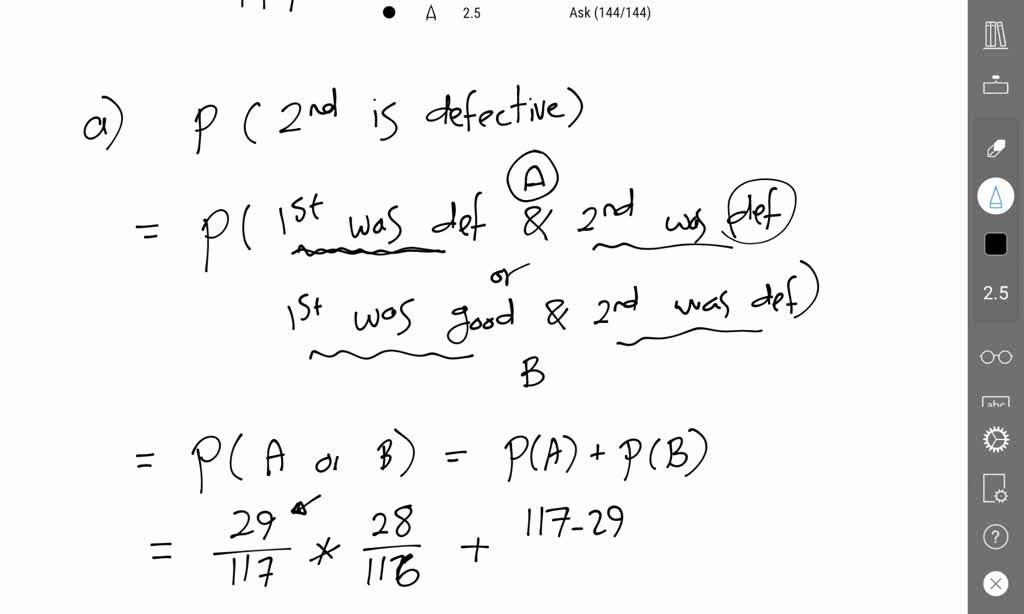 2.5 Ask (144/144)
a) P ( 2nd is defective)
A
= P( 1st was def & 2nd was def
or
1st was good & 2nd was def)
B
= P( A or B) = P(A) + P(B)
= 29/117 * 28/116 + 117-29
2.5
abc
?